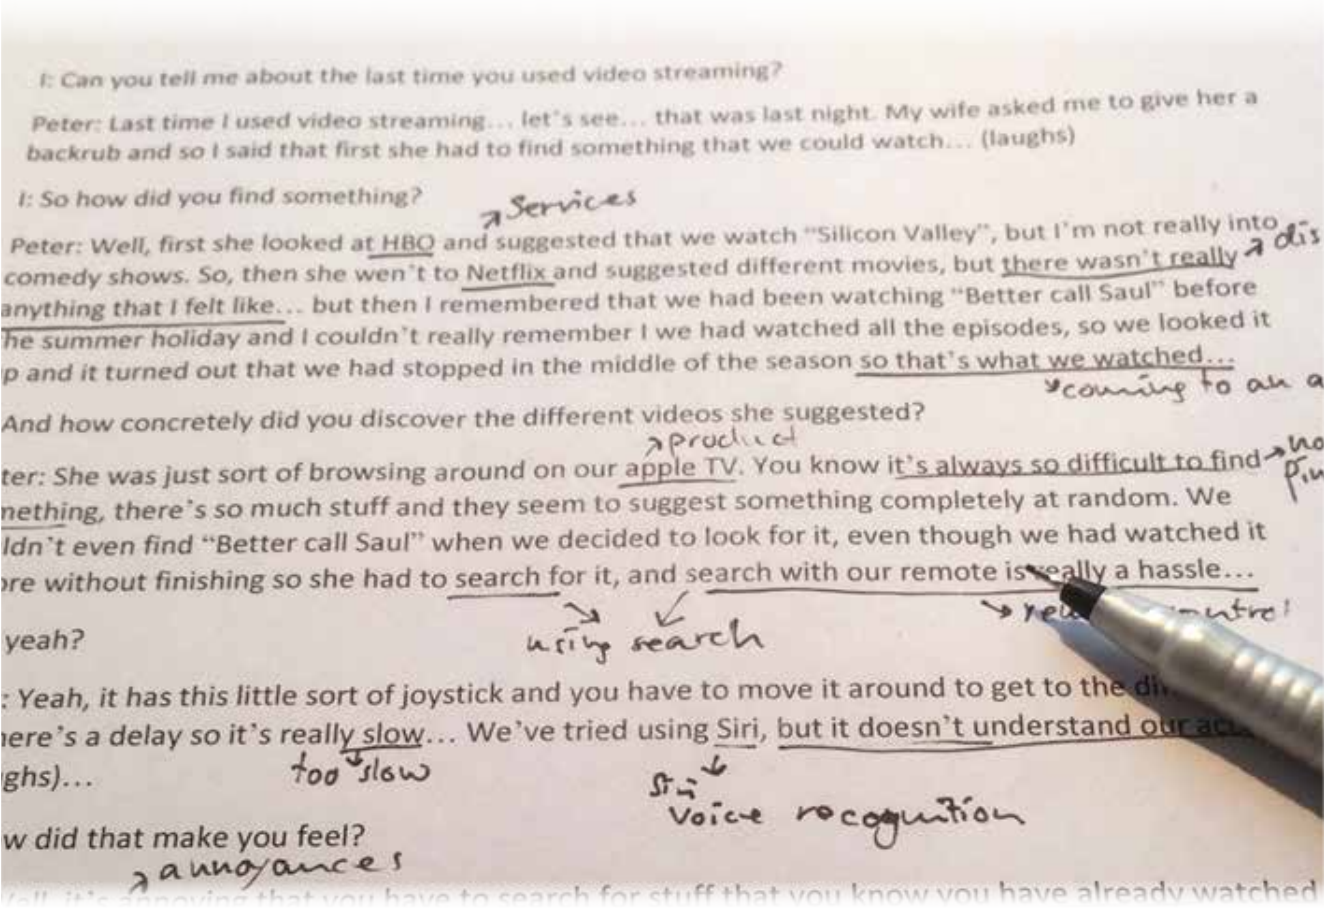 I: Can you tell me about the last time you used video streaming?
Peter: Last time I used video streaming... let's see... that was last night. My wife asked me to give her a
backrub and so I said that first she had to find something that we could watch... (laughs)
I: So how did you find something?
Services
Peter: Well, first she looked at HBO and suggested that we watch "Silicon Valley", but I'm not really into
dis
comedy shows. So, then she wen't to Netflix and suggested different movies, but there wasn't really
anything that I felt like... but then I remembered that we had been watching "Better call Saul" before
he summer holiday and I couldn't really remember I we had watched all the episodes, so we looked it
p and it turned out that we had stopped in the middle of the season so that's what we watched...
coming to an a
And how concretely did you discover the different videos she suggested?
product
ter: She was just sort of browsing around on our apple TV. You know it's always so difficult to find
no
mething, there's so much stuff and they seem to suggest something completely at random. We
ldn't even find "Better call Saul" when we decided to look for it, even though we had watched it
ore without finishing so she had to search for it, and search with our remote is really a hassle...
using search
yeah?
: Yeah, it has this little sort of joystick and you have to move it around to get to the
here's a delay so it's really slow... We've tried using Siri, but it doesn't understand our
ghs)...
too slow
voice recognition
w did that make you feel?
annoyances
annoying that you have to search for stuff that you know you have already watched